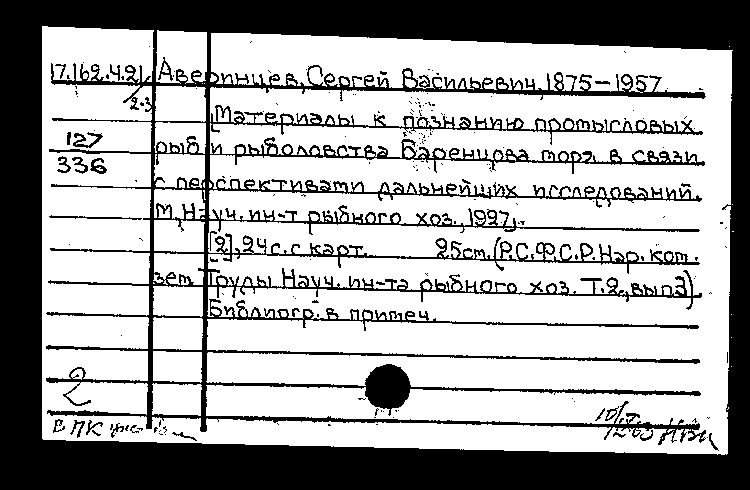 17.162.4.21 Аверинцев, Сергей Васильевич, 1875-1957.
2-3
[Материалы к познанию промысловых
127
336
рыб и рыболовства Баренцова моря в связи
с перспективами дальнейших исследований.
М, Науч. ин-т рыбного хоз., 1927].
[2], 24 с. с карт. 25 см. (Р.С.Ф.С.Р. Нар. ком.
зем Труды Науч. ин-та рыбного хоз. Т.2., вып 3).
Библиогр. в примеч.
2
В ПК